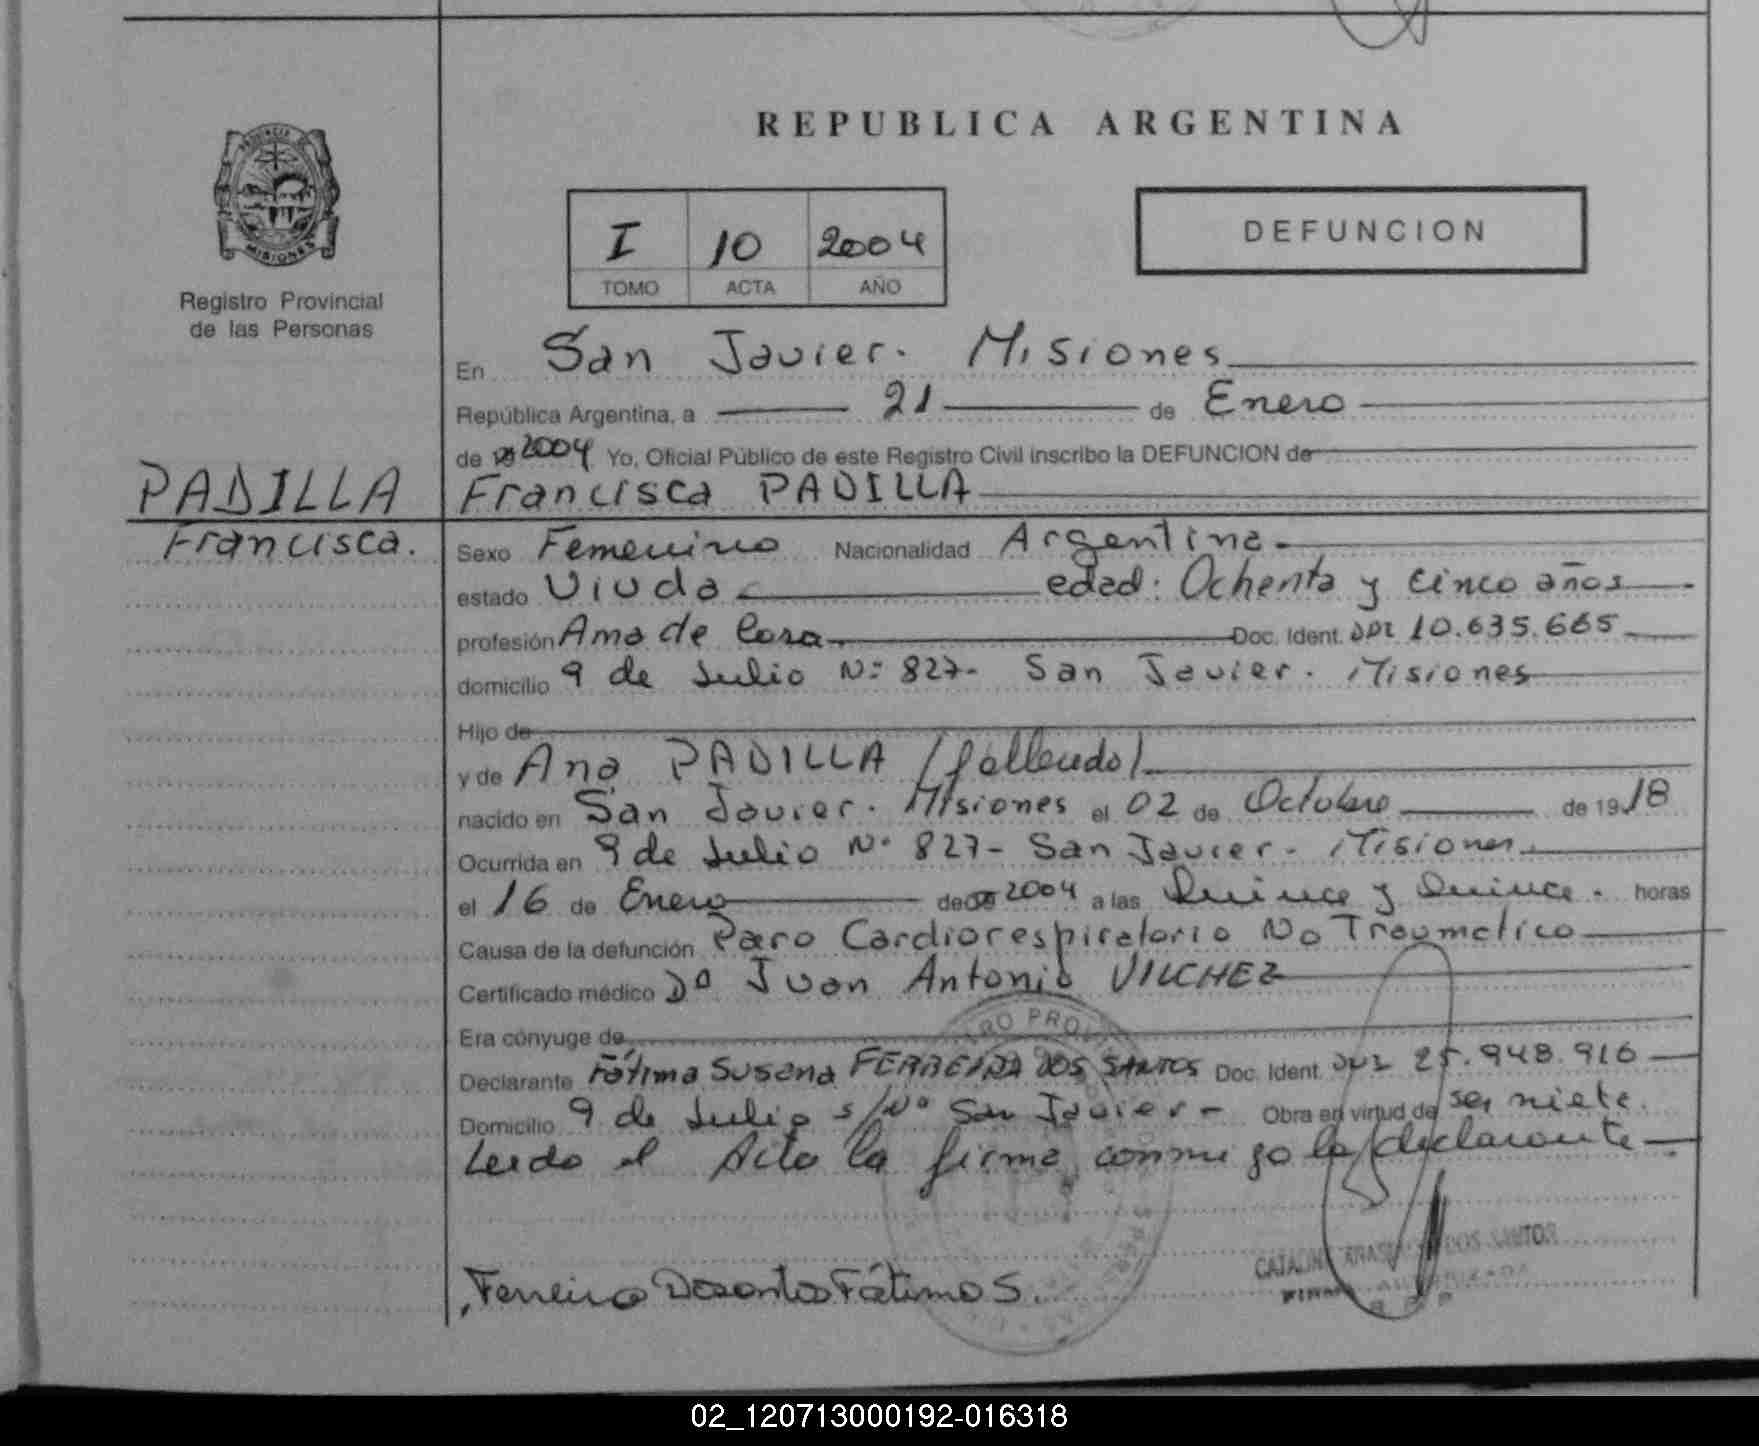 REPUBLICA ARGENTINA
PROVINCIA DE
MISIONES
Registro Provincial
de las Personas
I 10 2004
TOMO ACTA AÑO
DEFUNCION
En San Javier. Misiones
República Argentina, a 21 de Enero
de 2004 Yo, Oficial Público de este Registro Civil inscribo la DEFUNCION de
PADILLA
Francisca.
Francisca PADILLA
Sexo Femenino Nacionalidad Argentina
estado Viuda edad: Ochenta y cinco años
profesión Ama de Casa Doc. Ident. DNI 10.635.665
domicilio 9 de Julio Nº 827- San Javier. Misiones
Hijo de
y de Ana PADILLA (fallecida)
nacido en San Javier. Misiones el 02 de Octubre de 1918
Ocurrida en 9 de Julio Nº 827- San Javier- Misiones
el 16 de Enero de 2004 a las Quince y Quince. horas
Causa de la defunción Paro Cardiorespiratorio No Traumatico
Certificado médico Dº Juan Antonio VILCHEZ
Era cónyuge de
Declarante Fátima Susana FERREIRA DOS SANTOS Doc. Ident. DNI 25.948.916
Domicilio 9 de Julio s/Nº San Javier- Obra en virtud de ser nieta.
Leida el Acta la firma conmigo la declarante
Ferreira Dosantos Fátima S.
DOS SANTOS
02_120713000192-016318